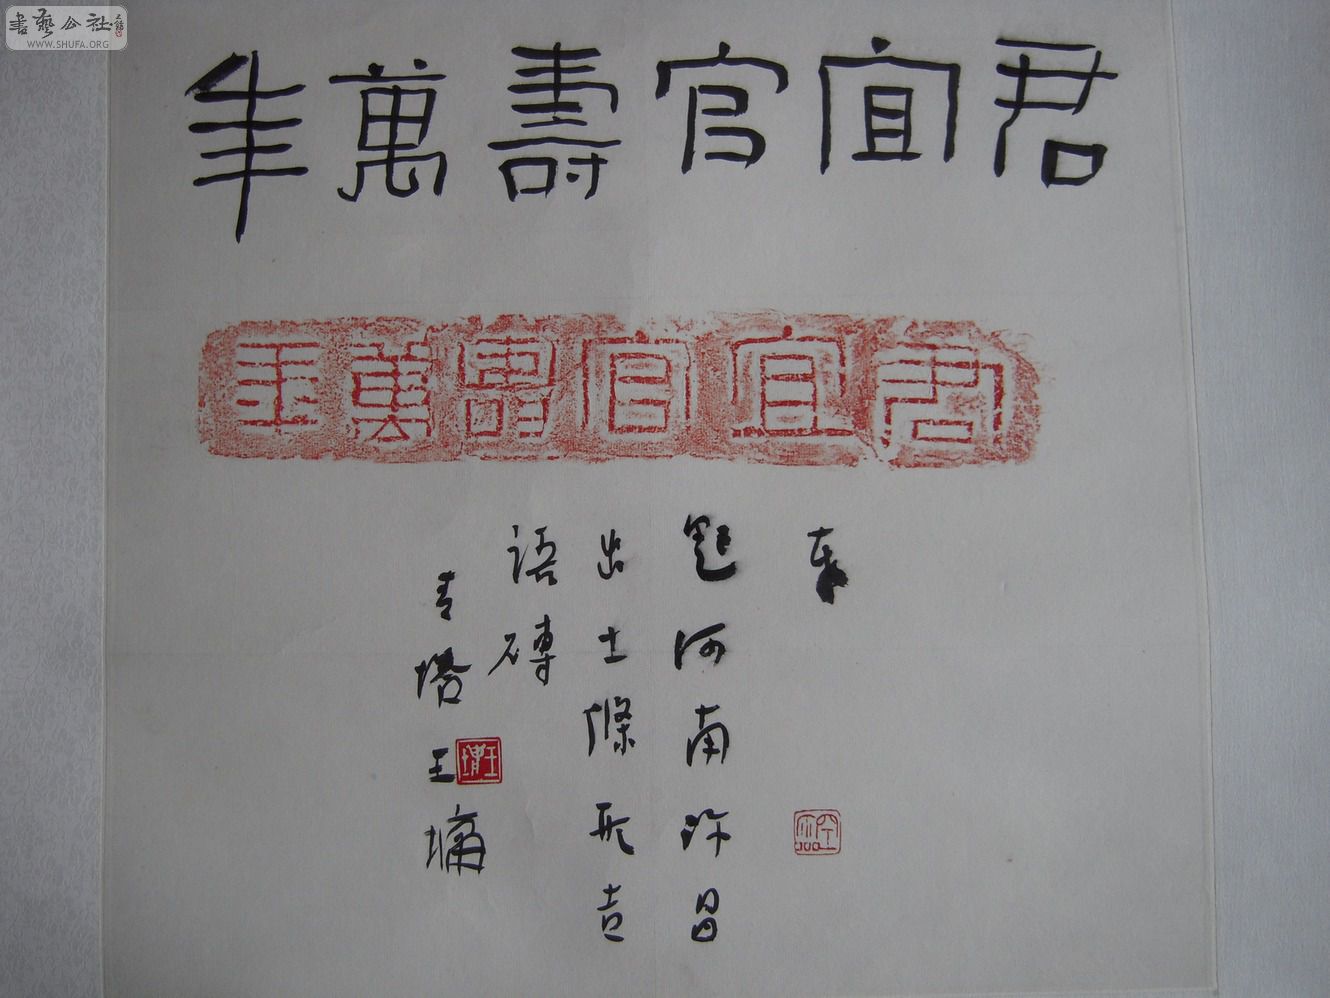 書藝公社
WWW.SHUFA.ORG
君宜官壽萬年
君宜官壽萬年
題河南許昌
出土條形吉
語磚
青塔王墉
王墉